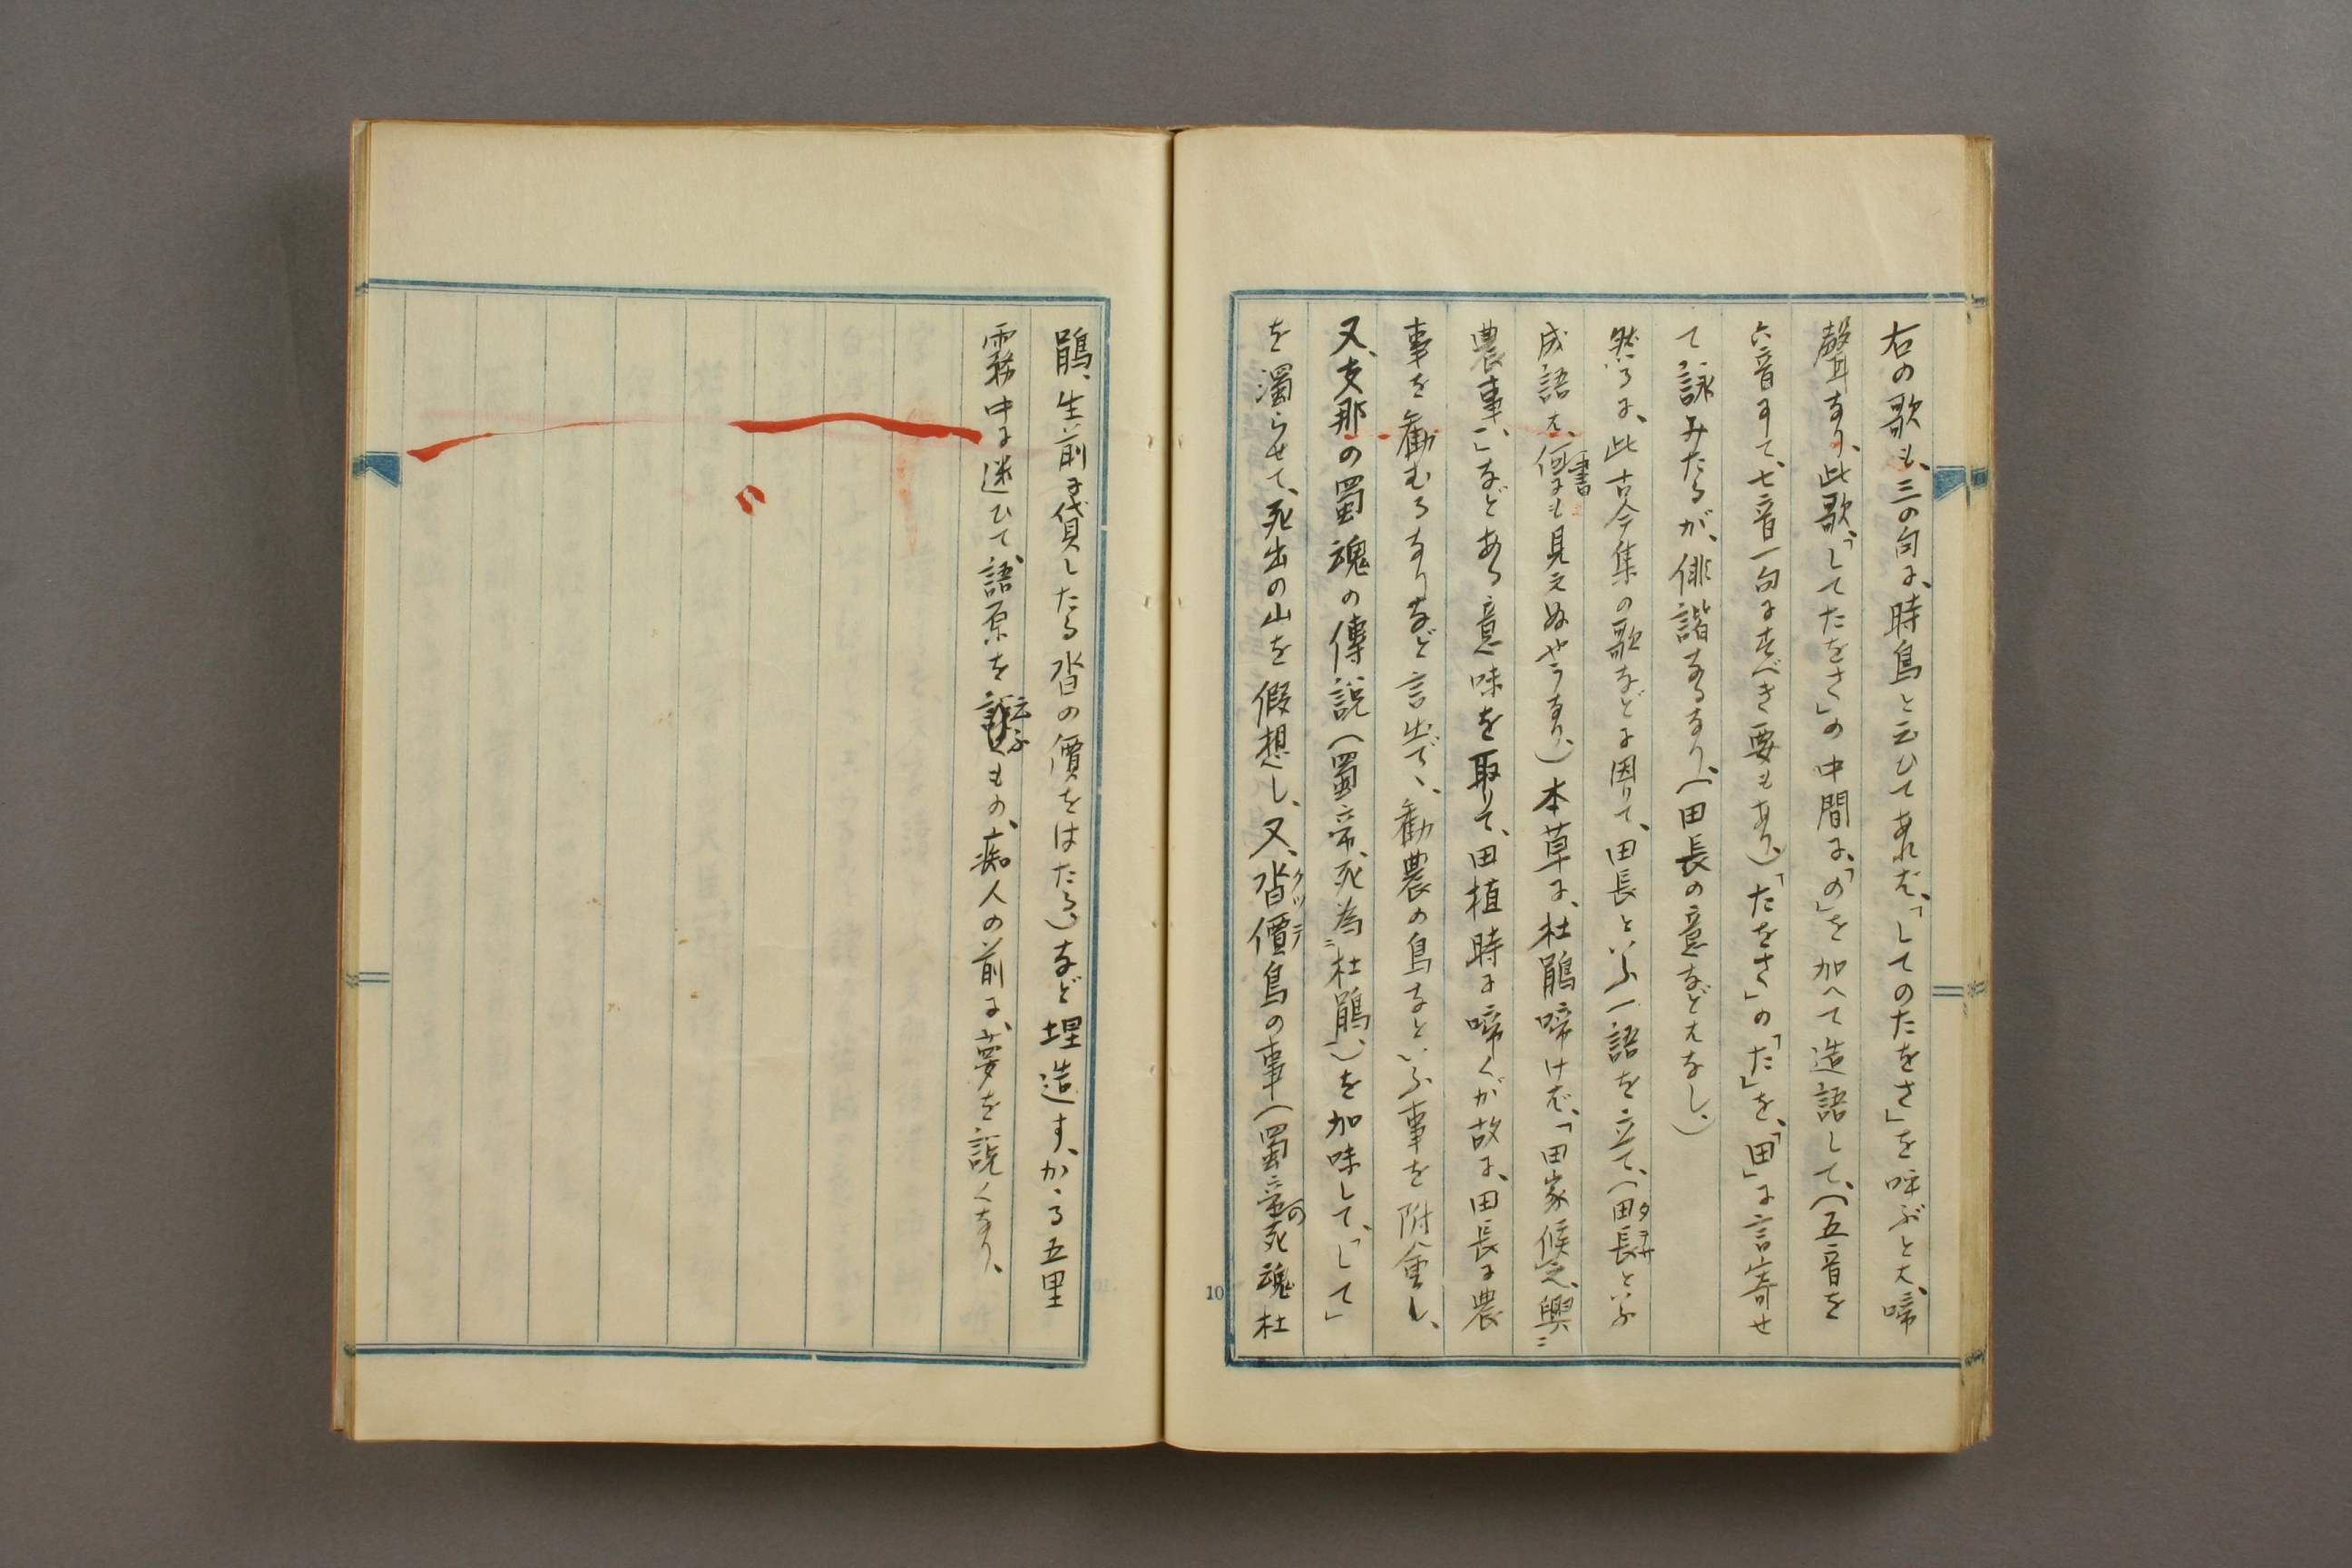 右の歌も、三の句に、時鳥と云ひてあれば、「してのたをさ」を呼ぶとは、啼
聲なり、此歌、「してたをさ」の中間に、「の」を加へて造語して、（五音を
六音にて、七音一句にすべき要もあり、）「たをさ」の「た」を、「田」に言寄せ
て詠みたるが、俳諧なるなり、（田長の意などはなし、）
然るに、此古今集の歌などに因りて、田長といふ一語を立て、（田長タヲサといふ
成語は、何書にも見えぬやうなり、）本草に、杜鵑啼けば、「田家候之、興ニ
農事、」などある意味を取りて、田植時に啼くが故に、田長に農
事を勸むるなりなど言出で、勸農の鳥なといふ事を附會し、
又、支那の蜀魂の傳説（蜀帝死為ニ杜鵑、）を加味して、「して」
を濁らせて、死出の山を假想し、又、沓價クツテ鳥の事（蜀帝の死魂杜
鵑、生前に貸したる沓の價をはたる）など埋造す、かゝる五里
霧中に迷ひて、語原を云ふもの、痴人の前に、夢を説くなり、
10